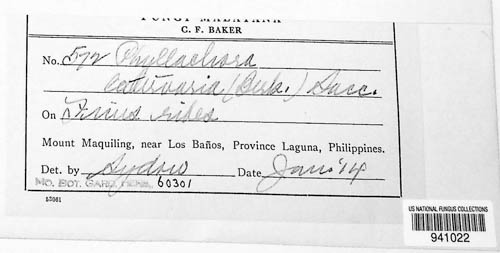 FUNGI MALAYANA
C. F. BAKER
No. 572 Phyllachora
catervaria (Berk.) Sacc.
On Ficus
Mount Maquiling, near Los Baños, Province Laguna, Philippines.
Det. by Sydow Date Jan. '14
MO. BOT. GARD. HERB. 60301
53061
US NATIONAL FUNGUS COLLECTIONS
941022